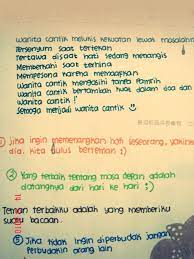 wanita cantik melukis kekuatan lewat masalahn
Tersenyum saat tertekan
Tertawa disaat hati sedang menangis
Memberkati saat terhina
Mempesona karena memaafkan
Wanita cantik mengasihi tanpa pamrih
Wanita cantik bertambah kuat dalam doa dan
Wanita cantik!
Semoga menjadi wanita cantik
① Jika ingin memenangkan hati seseorang, yakink
dia. kita tulus berteman :)
② Yang terbaik tentang masa depan adalah
datangnya dari hari ke hari :)
Teman terbaikku adalah yang memberiku
bacaan.
⑤ Jika tidak ingin diperbudak jangan
Perbudakin orang lain